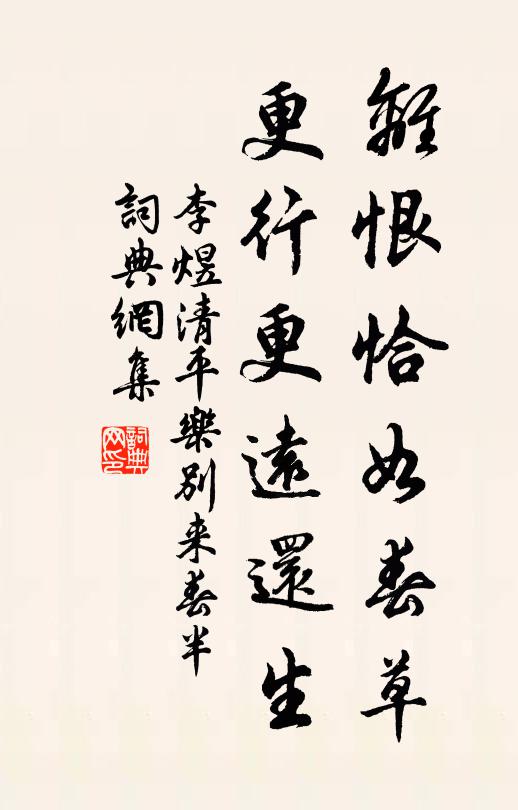 離恨恰如春草
更行更遠還生
李煜清平樂别来春半
詞典網集
詞典网印